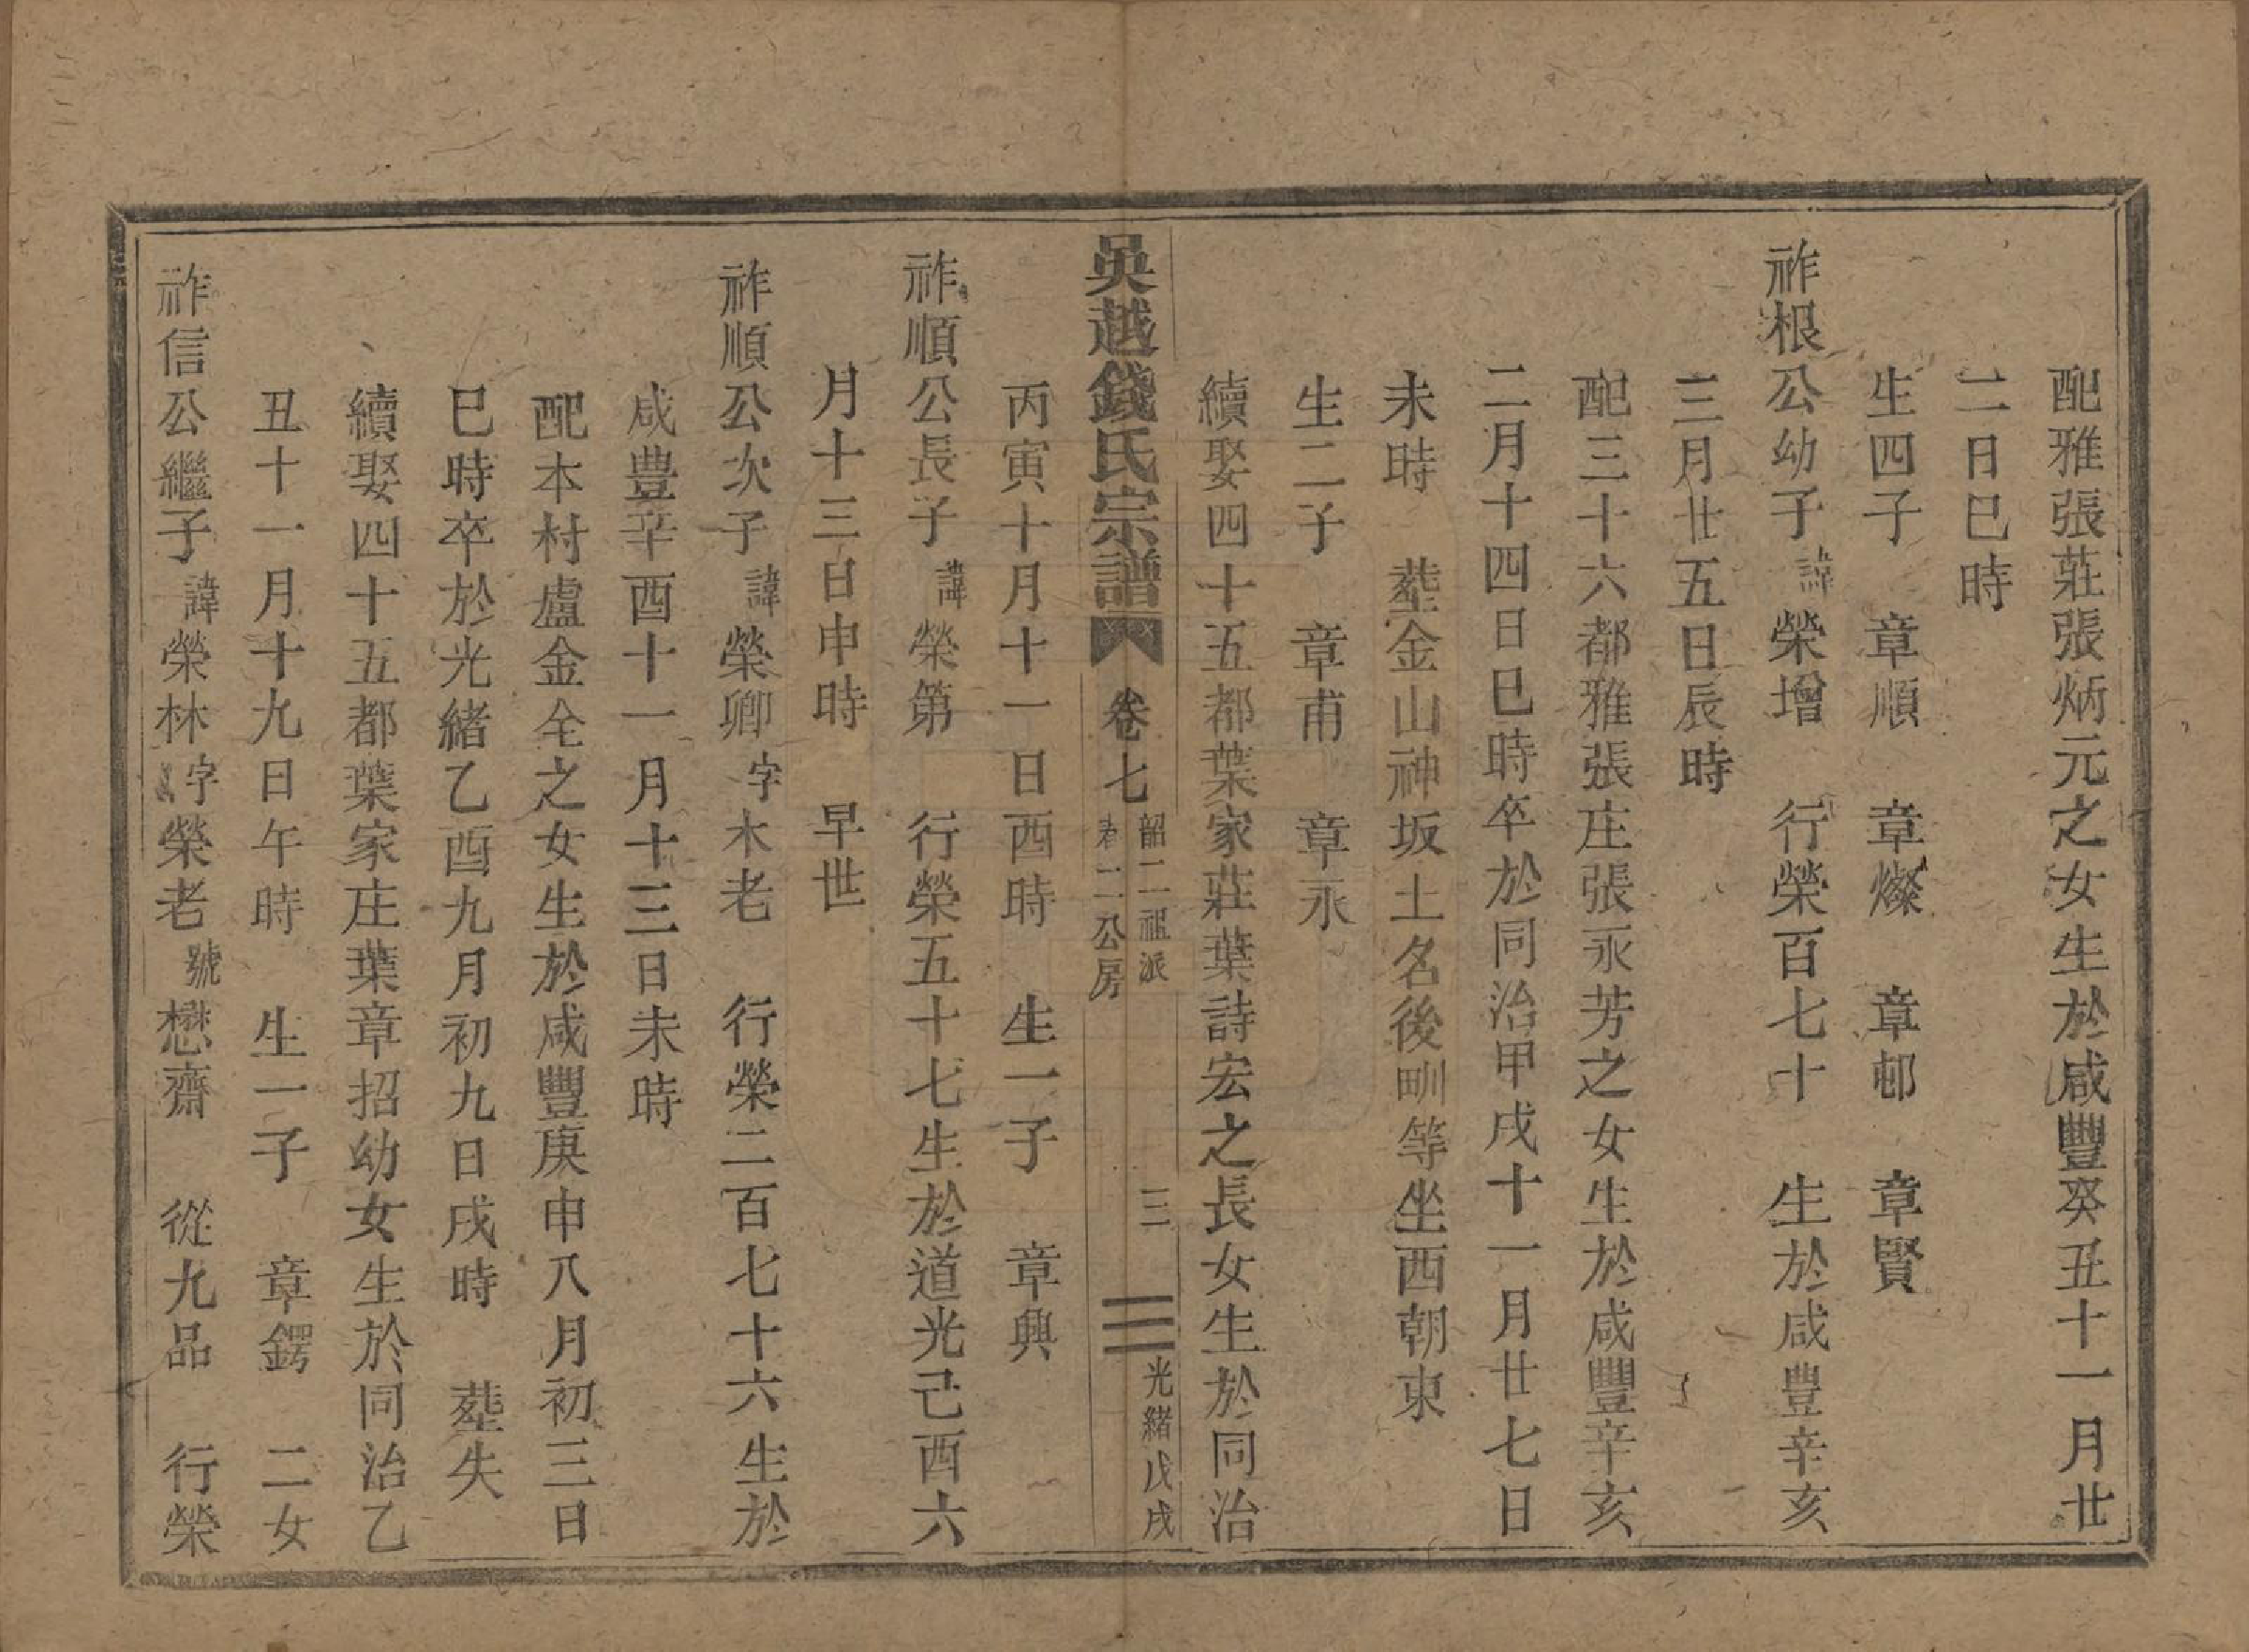 配雅張莊張炳元之女生於咸豐癸丑十一月廿
二日巳時
生四子　章順　章燦　章邨　章賢
祚根公幼子諱榮增　行榮百七十　生於咸豊辛亥
三月廿五日辰時
配三十六都雅張庄張永芳之女生於咸豐辛亥
二月十四日巳時卒於同治甲戌十一月廿七日
未時　塟金山神坂土名後甽等坐西朝東
生二子　章甫　章永
續娶四十五都葉家莊葉詩宏之長女生於同治
吳越錢氏宗譜　卷七　韶二祖派　二公房　三　光緒戊戌
丙寅十月十一日酉時　生一子　章興
祚順公長子諱榮第　行榮五十七生於道光己酉六
月十三日申時　早世
祚順公次子諱榮卿字木老　行榮二百七十六生於
咸豊辛酉十一月十三日未時
配本村盧金全之女生於咸豐庚申八月初三日
巳時卒於光緒乙酉九月初九日戌時　塟失
續娶四十五都葉家庄葉章招幼女生於同治乙
丑十一月十九日午時　生一子　章鍔　二女
祚信公繼子諱榮林字榮老號懋齋　從九品　行榮